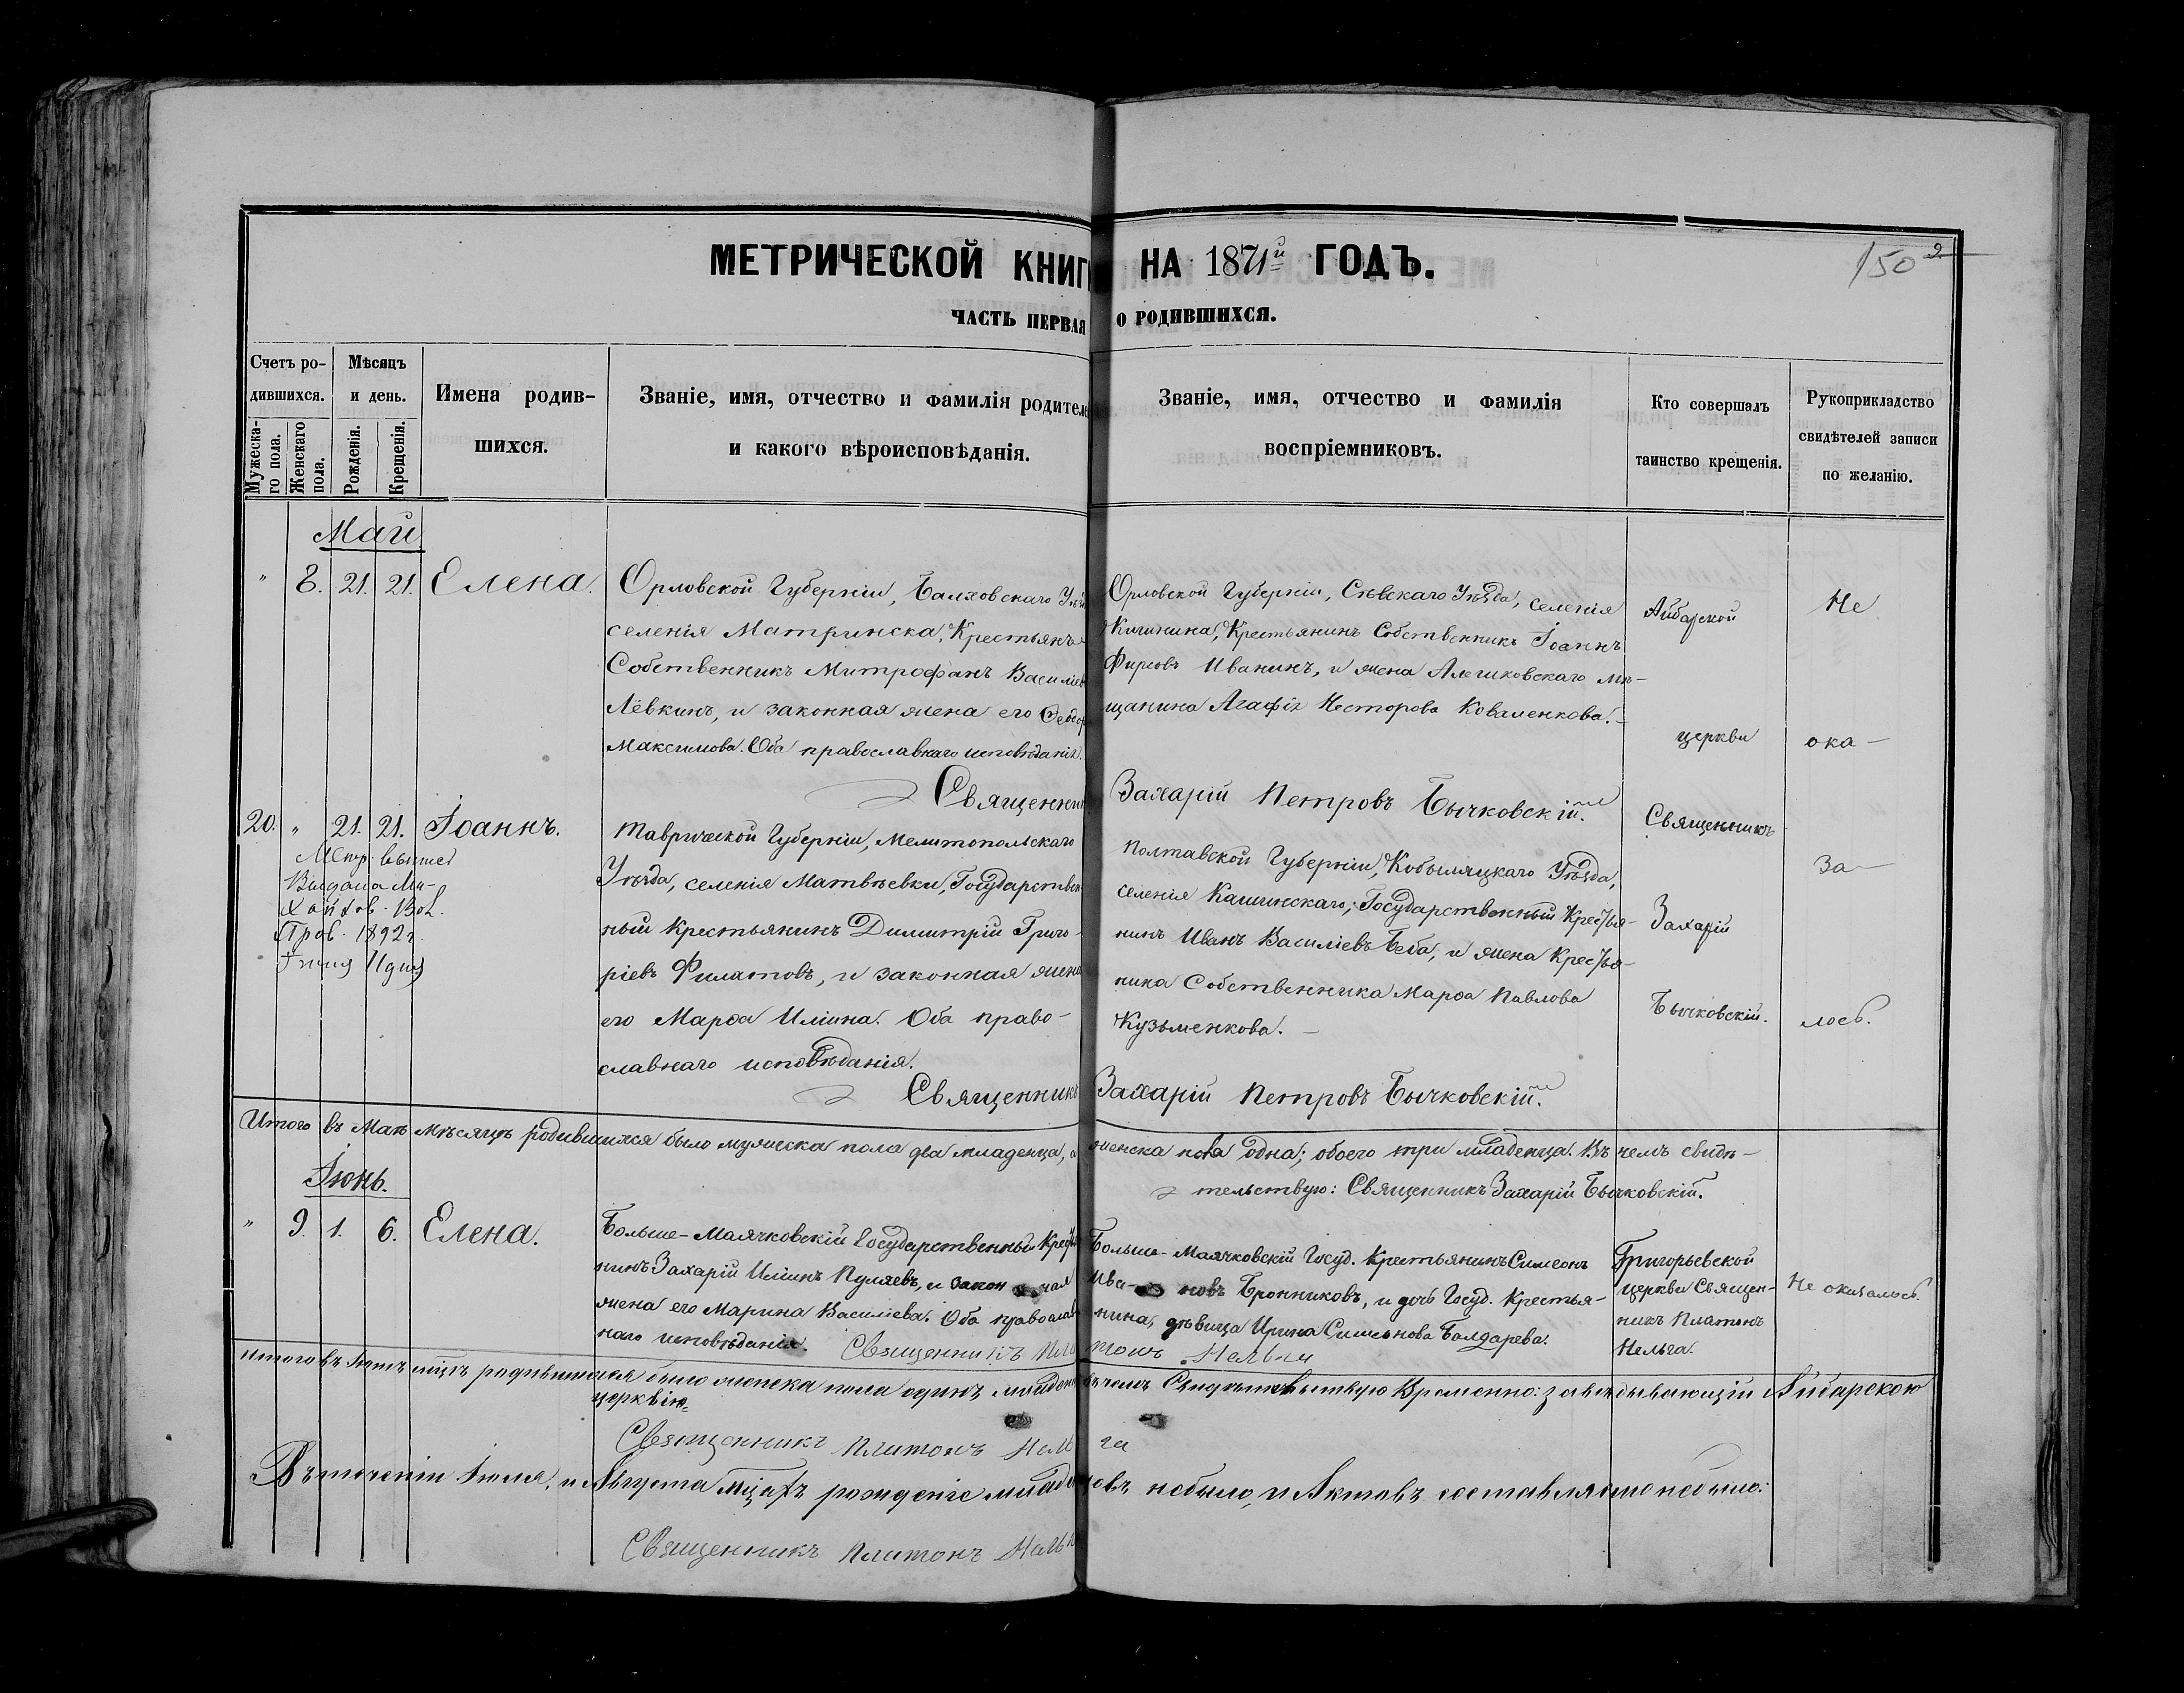 МЕТРИЧЕСКОЙ КНИГИ НА 1871й ГОДЪ.
150
ЧАСТЬ ПЕРВАЯ О РОДИВШИХСЯ.
Счетъ ро-
дившихся.
Мужеска-
го пола.
Женскаго
пола.
Мѣсяцъ
и день.
Рожденія.
Крещенія.
Имена родив-
шихся.
Званіе, имя, отчество и фамилія родителе
и какого вѣроисповѣданія.
Званіе, имя, отчество и фамилія
воспріемниковъ.
Кто совершалъ
таинство крещенія.
Рукоприкладство
свидѣтелей записи
по желанію.
Май
" 8. 21. 21. Елена.
Орловской Губерніи, Балховскаго Уѣз
селенія Матринска, Крестьянъ
Собственникъ Митрофанъ Василіев
Лёвкинъ, и законная жена его Ѳеодор
Максимова. Оба православнаго исповѣданія.
Орловской Губерніи, Сѣвскаго Уѣзда, селенія
Кичинина, Крестьянинъ Собственникъ Іоаннъ
Фирсовъ Иванинъ, и жена Алешковскаго мѣ-
щанина Агафія Несторова Коваленкова.
Священник Захарій Петровъ Бычковскій.
20. " 21. 21. Іоаннъ.
Метр. выпись
Выдана Ми-
хайлов. Вол.
Прав. 1892 г.
Іюня 11 дня
Таврической Губерніи, Мелитопольскаго
Уѣзда, селенія Матвѣевки, Государствен
ный Крестьянинъ Димитрій Григо-
ріевъ Филатовъ, и законная жена
его Марѳа Иліина. Оба право-
славнаго исповѣданія.
Полтавской Губерніи, Кобыляцкаго Уѣзда,
селенія Кашинскаго, Государственный Крестья-
нинъ Иванъ Василіевъ Беба, и жена Крестья-
нина Собственника Марѳа Павлова
Кузьменкова.
Священникъ Захарій Петровъ Бычковскій.
Айбарской
церкви
Священникъ
Захарій
Бычковскій.
Не
ока-
за-
лось.
Итого въ Маѣ мѣсяцѣ родившихся было мужеска пола два младенца, а женска пола одна; обоего три младенца. Въ чемъ свидѣ-
тельствую: Священникъ Захарій Бычковскій.
Іюнь.
" 9. 1. 6. Елена.
Больше-Маячковскій Государственный Крестья
нинъ Захарій Иліинъ Пуляевъ, и законная
жена его Марина Василіева. Оба православ
наго исповѣданія.
Больше-Маячковскій Госуд. Крестьянинъ Симеонъ
Ива-новъ Бронниковъ, и дочь Госуд. Крестья-
нина, дѣвица Ирина Симеонова Балдарева.
Григорьевской
церкви Священ-
никъ Платонъ
Нельга.
Не оказалось.
Священникъ Платонъ Нельга
Итого въ Іюнѣ мцѣ родившихся было женска пола одинъ младен въ чемъ Свидѣтельствую Временно: завѣдывающій Айбарскою
церквію
Священникъ Платонъ Нельга
Въ теченіи Іюля, и Августа мцахъ рожденіе младенцовъ небыло, и Актовъ составляемо небыло:
Священникъ Платонъ Нельг